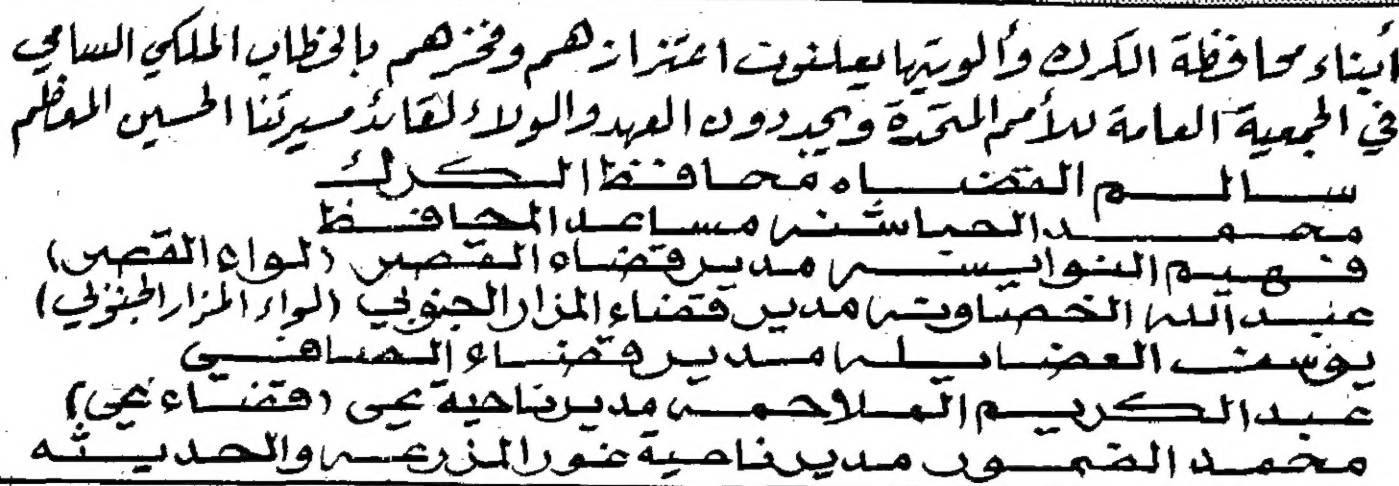 أبناء محافظة الكرك وألويتها يعلنون اعتزازهم وفخرهم بالخطاب الملكي السامي
في الجمعية العامة للأمم المتحدة ويجددون العهد والولاء لقائد مسيرتنا الحسين المعظم
سالم القضاه محافظ الكرك
محمد الحباشنه مساعد المحافظ
فهيم النوايسه مدير قضاء القصر (لواء القصر)
عبد الله الخصاونه مدير قضاء المزار الجنوبي (لواء المزار الجنوبي)
يوسف العضايله مدير قضاء الصافي
عبد الكريم الملاحمه مدير ناحية عي (قضاء عي)
محمد الضمور مدير ناحية غور المزرعه والحديثه